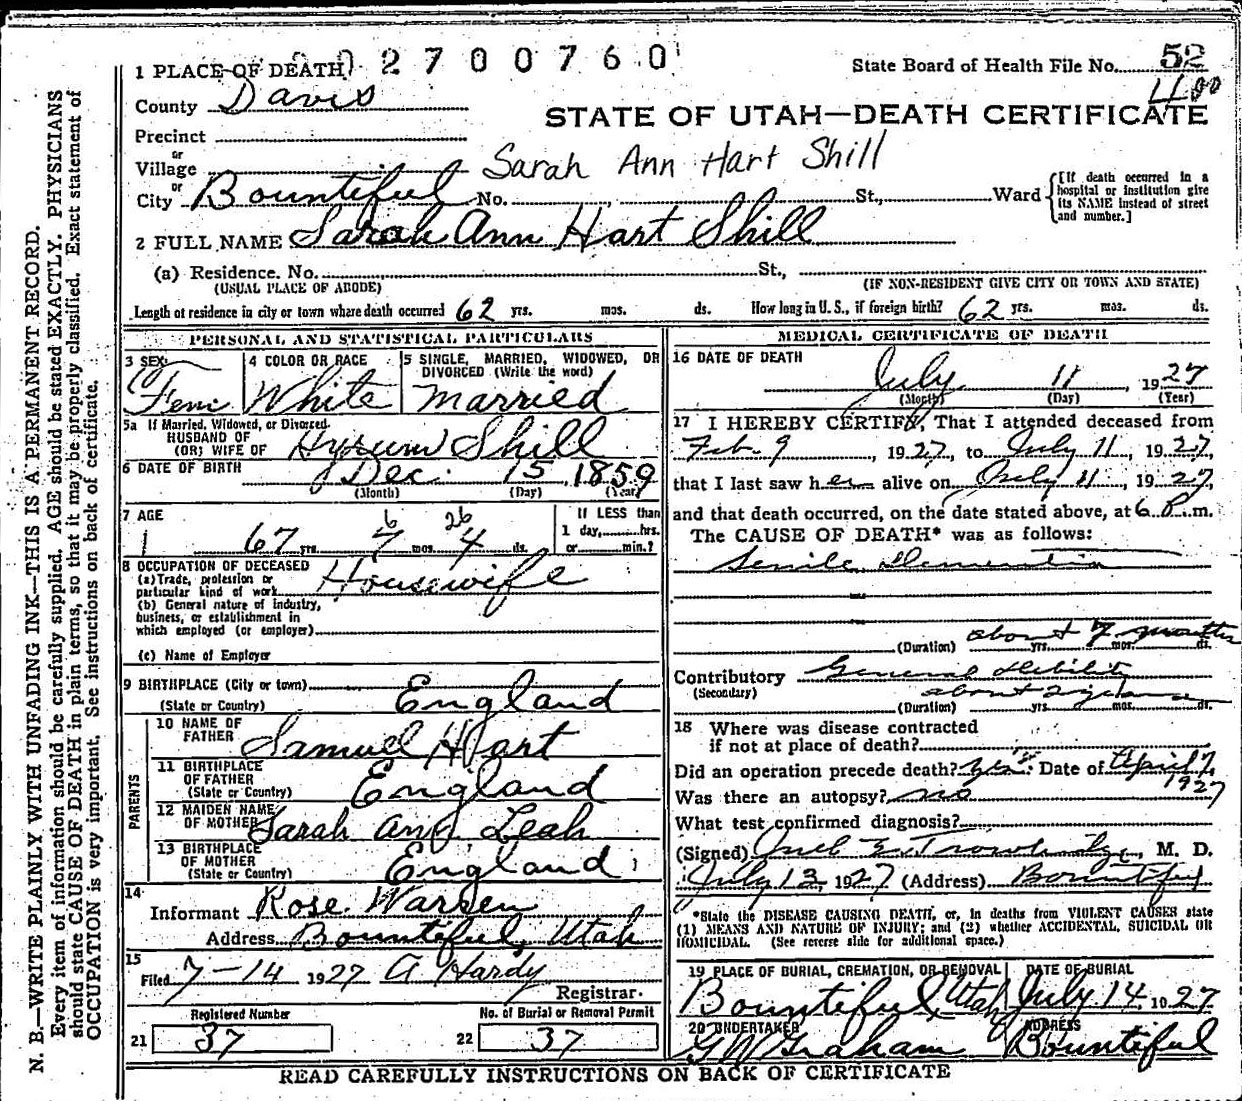 1 PLACE OF DEATH 0 2 7 0 0 7 6 0
State Board of Health File No. 52
400
County Davis
STATE OF UTAH—DEATH CERTIFICATE
Precinct
or
Village
Sarah Ann Hart Shill
or
City Bountiful No. St., Ward
[If death occurred in a hospital or institution give its NAME instead of street and number.]
2 FULL NAME Sarah Ann Hart Shill
(a) Residence. No. St.,
(USUAL PLACE OF ABODE) (IF NON-RESIDENT GIVE CITY OR TOWN AND STATE)
Length of residence in city or town where death occurred 62 yrs. mos. ds. How long in U.S., if foreign birth? 62 yrs. mos. ds.
PERSONAL AND STATISTICAL PARTICULARS
3 SEX Fem
4 COLOR OR RACE White
5 SINGLE, MARRIED, WIDOWED, OR DIVORCED (Write the word) Married
5a If Married, Widowed, or Divorced
HUSBAND OF
(OR) WIFE OF Hyrum Shill
6 DATE OF BIRTH Dec. 15, 1859
(Month) (Day) (Year)
7 AGE 67 yrs. 7 mos. 4 ds.
6 26
If LESS than
1 day, hrs.
or min.?
8 OCCUPATION OF DECEASED
(a) Trade, profession or
particular kind of work Housewife
(b) General nature of industry,
business, or establishment in
which employed (or employer)
(c) Name of Employer
9 BIRTHPLACE (City or town)
(State or Country) England
PARENTS
10 NAME OF
FATHER Samuel Hart
11 BIRTHPLACE
OF FATHER
(State or Country) England
12 MAIDEN NAME
OF MOTHER Sarah Ann Leah
13 BIRTHPLACE
OF MOTHER
(State or Country) England
14
Informant Rose Warren
Address Bountiful, Utah
15
Filed 7-14 1927 A Hardy
Registrar.
Registered Number
21 37
No. of Burial or Removal Permit
22 37
MEDICAL CERTIFICATE OF DEATH
16 DATE OF DEATH
July 11, 1927
(Month) (Day) (Year)
17 I HEREBY CERTIFY, That I attended deceased from
Feb. 9, 1927, to July 11, 1927,
that I last saw her alive on July 11, 1927,
and that death occurred, on the date stated above, at 6 P.m.
The CAUSE OF DEATH* was as follows:
Senile Dementia
about 7 months
(Duration) yrs. mos. ds.
Contributory General debility
(Secondary) about
(Duration) yrs. mos. ds.
18 Where was disease contracted
if not at place of death?
Did an operation precede death? yes. Date of April 7,
1927
Was there an autopsy? no
What test confirmed diagnosis?
(Signed) Trowbridge, M. D.
July 13, 1927 (Address) Bountiful
*State the DISEASE CAUSING DEATH, or, in deaths from VIOLENT CAUSES state
(1) MEANS AND NATURE OF INJURY; and (2) whether ACCIDENTAL, SUICIDAL OR
HOMICIDAL. (See reverse side for additional space.)
19 PLACE OF BURIAL, CREMATION, OR REMOVAL
Bountiful, Utah
DATE OF BURIAL
July 14, 1927
20 UNDERTAKER
G W Graham
ADDRESS
Bountiful
READ CAREFULLY INSTRUCTIONS ON BACK OF CERTIFICATE
N. B.—WRITE PLAINLY WITH UNFADING INK—THIS IS A PERMANENT RECORD.
Every item of information should be carefully supplied. AGE should be stated EXACTLY. PHYSICIANS
should state CAUSE OF DEATH in plain terms, so that it may be properly classified. Exact statement of
OCCUPATION is very important. See instructions on back of certificate.